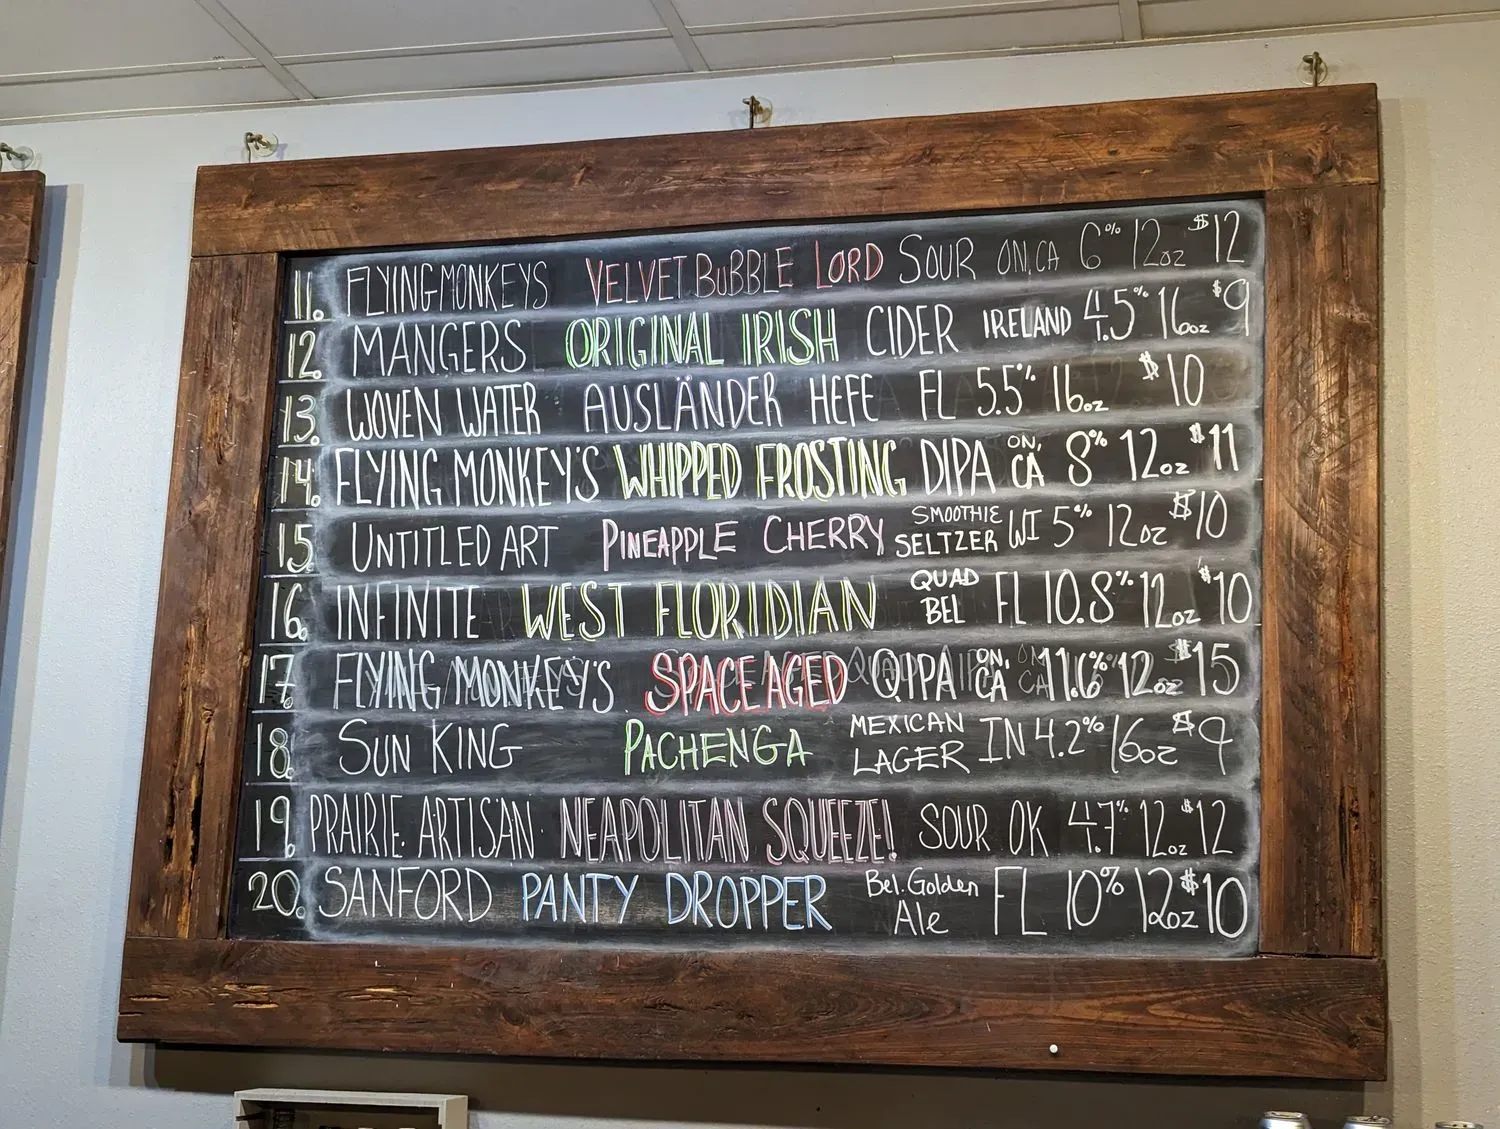 11. FLYING MONKEYS VELVET BUBBLE LORD SOUR ON, CA 6% 12oz $12
12. MANGERS ORIGINAL IRISH CIDER IRELAND 4.5% 16oz $9
13. WOVEN WATER AUSLÄNDER HEFE FL 5.5% 16oz $10
14. FLYING MONKEY'S WHIPPED FROSTING DIPA ON, CA 8% 12oz $11
15. UNTITLED ART PINEAPPLE CHERRY SMOOTHIE SELTZER WI 5% 12oz $10
16. INFINITE WEST FLORIDIAN QUAD BEL FL 10.8% 12oz $10
17. FLYING MONKEY'S SPACE AGED QIPA ON, CA 11.6% 12oz $15
18. SUN KING PACHENGA MEXICAN LAGER IN 4.2% 16oz $9
19. PRAIRIE ARTISAN NEAPOLITAN SQUEEZE! SOUR OK 4.7% 12oz $12
20. SANFORD PANTY DROPPER Bel. Golden Ale FL 10% 12oz $10